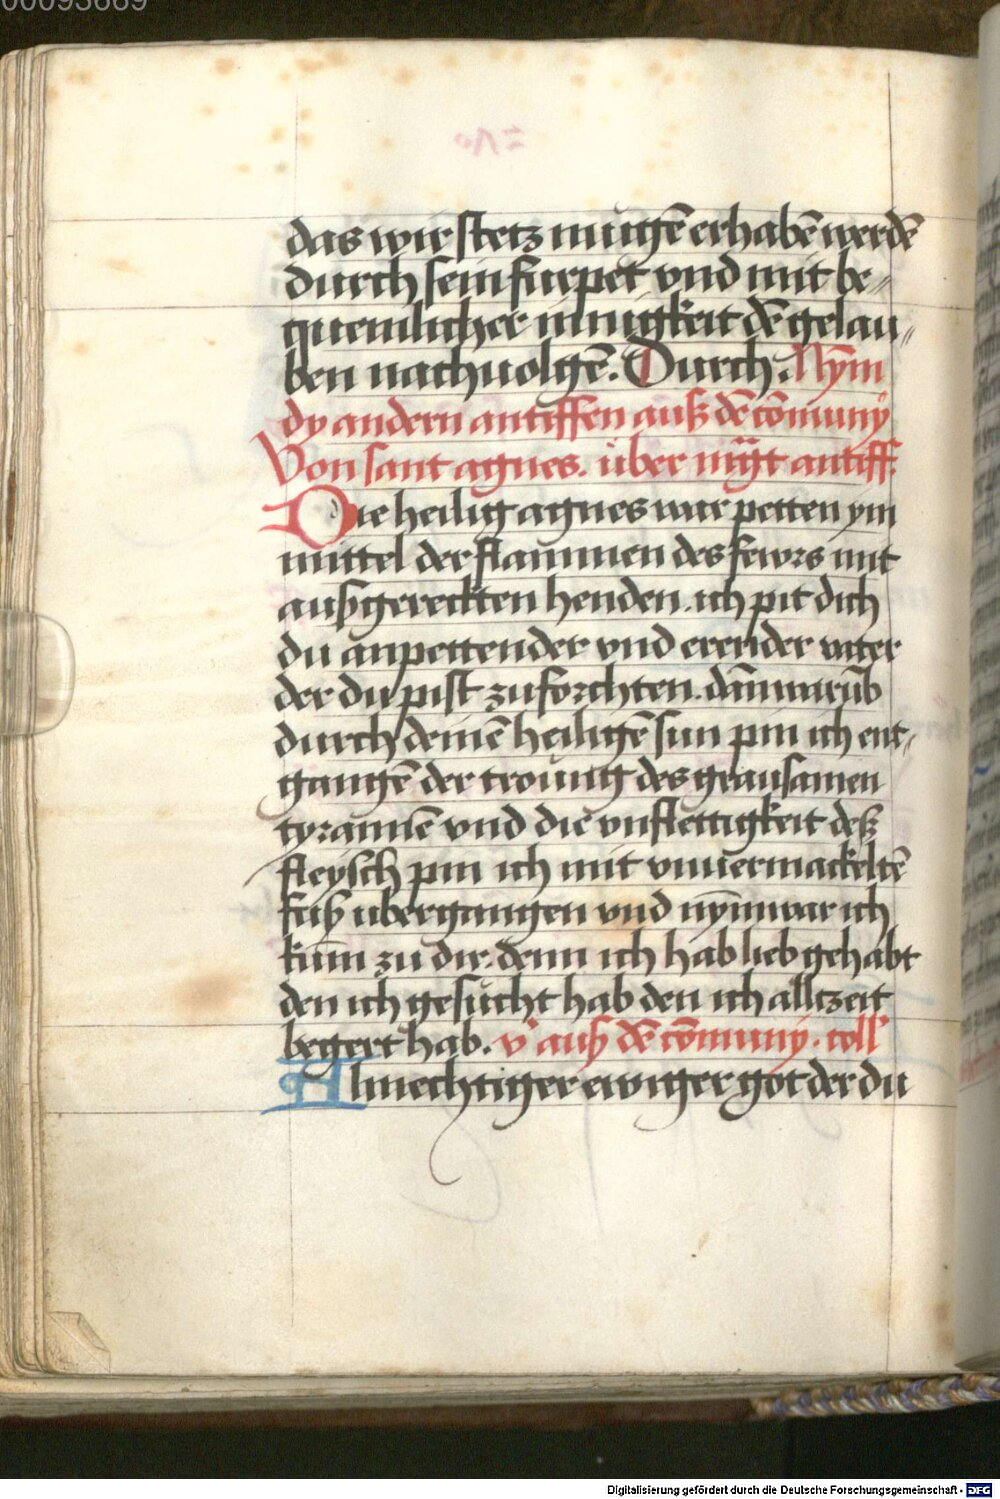 00093889
das wir stetz mugē erhabē werdē
durch sein furpet vnd mit be-
quemlicher innigkeit dē gelau-
ben nachuolgē. Durch. Nȳm
dy andern antiffen auß dē cōmuny
Von sant agnes. über mgt antiff.
Die heilig agnes war petten ym
mittel der flammen des fewrs mit
außgereckten henden. ich pit dich
du anpettender vnd erender vater
der du pist zuforchten. dāmwarūb
durch deinē heiligē sun pin ich ent-
gangē der troūng des grausamen
tyrannē vnd die vnflettigkeit deß
fleysch pin ich mit vnuermackeltē
fuß ubergangen vnd nȳmwar ich
kūm zu dir. denn ich hab lieb gehabt
den ich gesucht hab den ich alltzeit
begert hab. v̓ auß dē cōmuny. coll
Almechtiger ewiger got der du
Digitalisierung gefördert durch die Deutsche Forschungsgemeinschaft - DFG